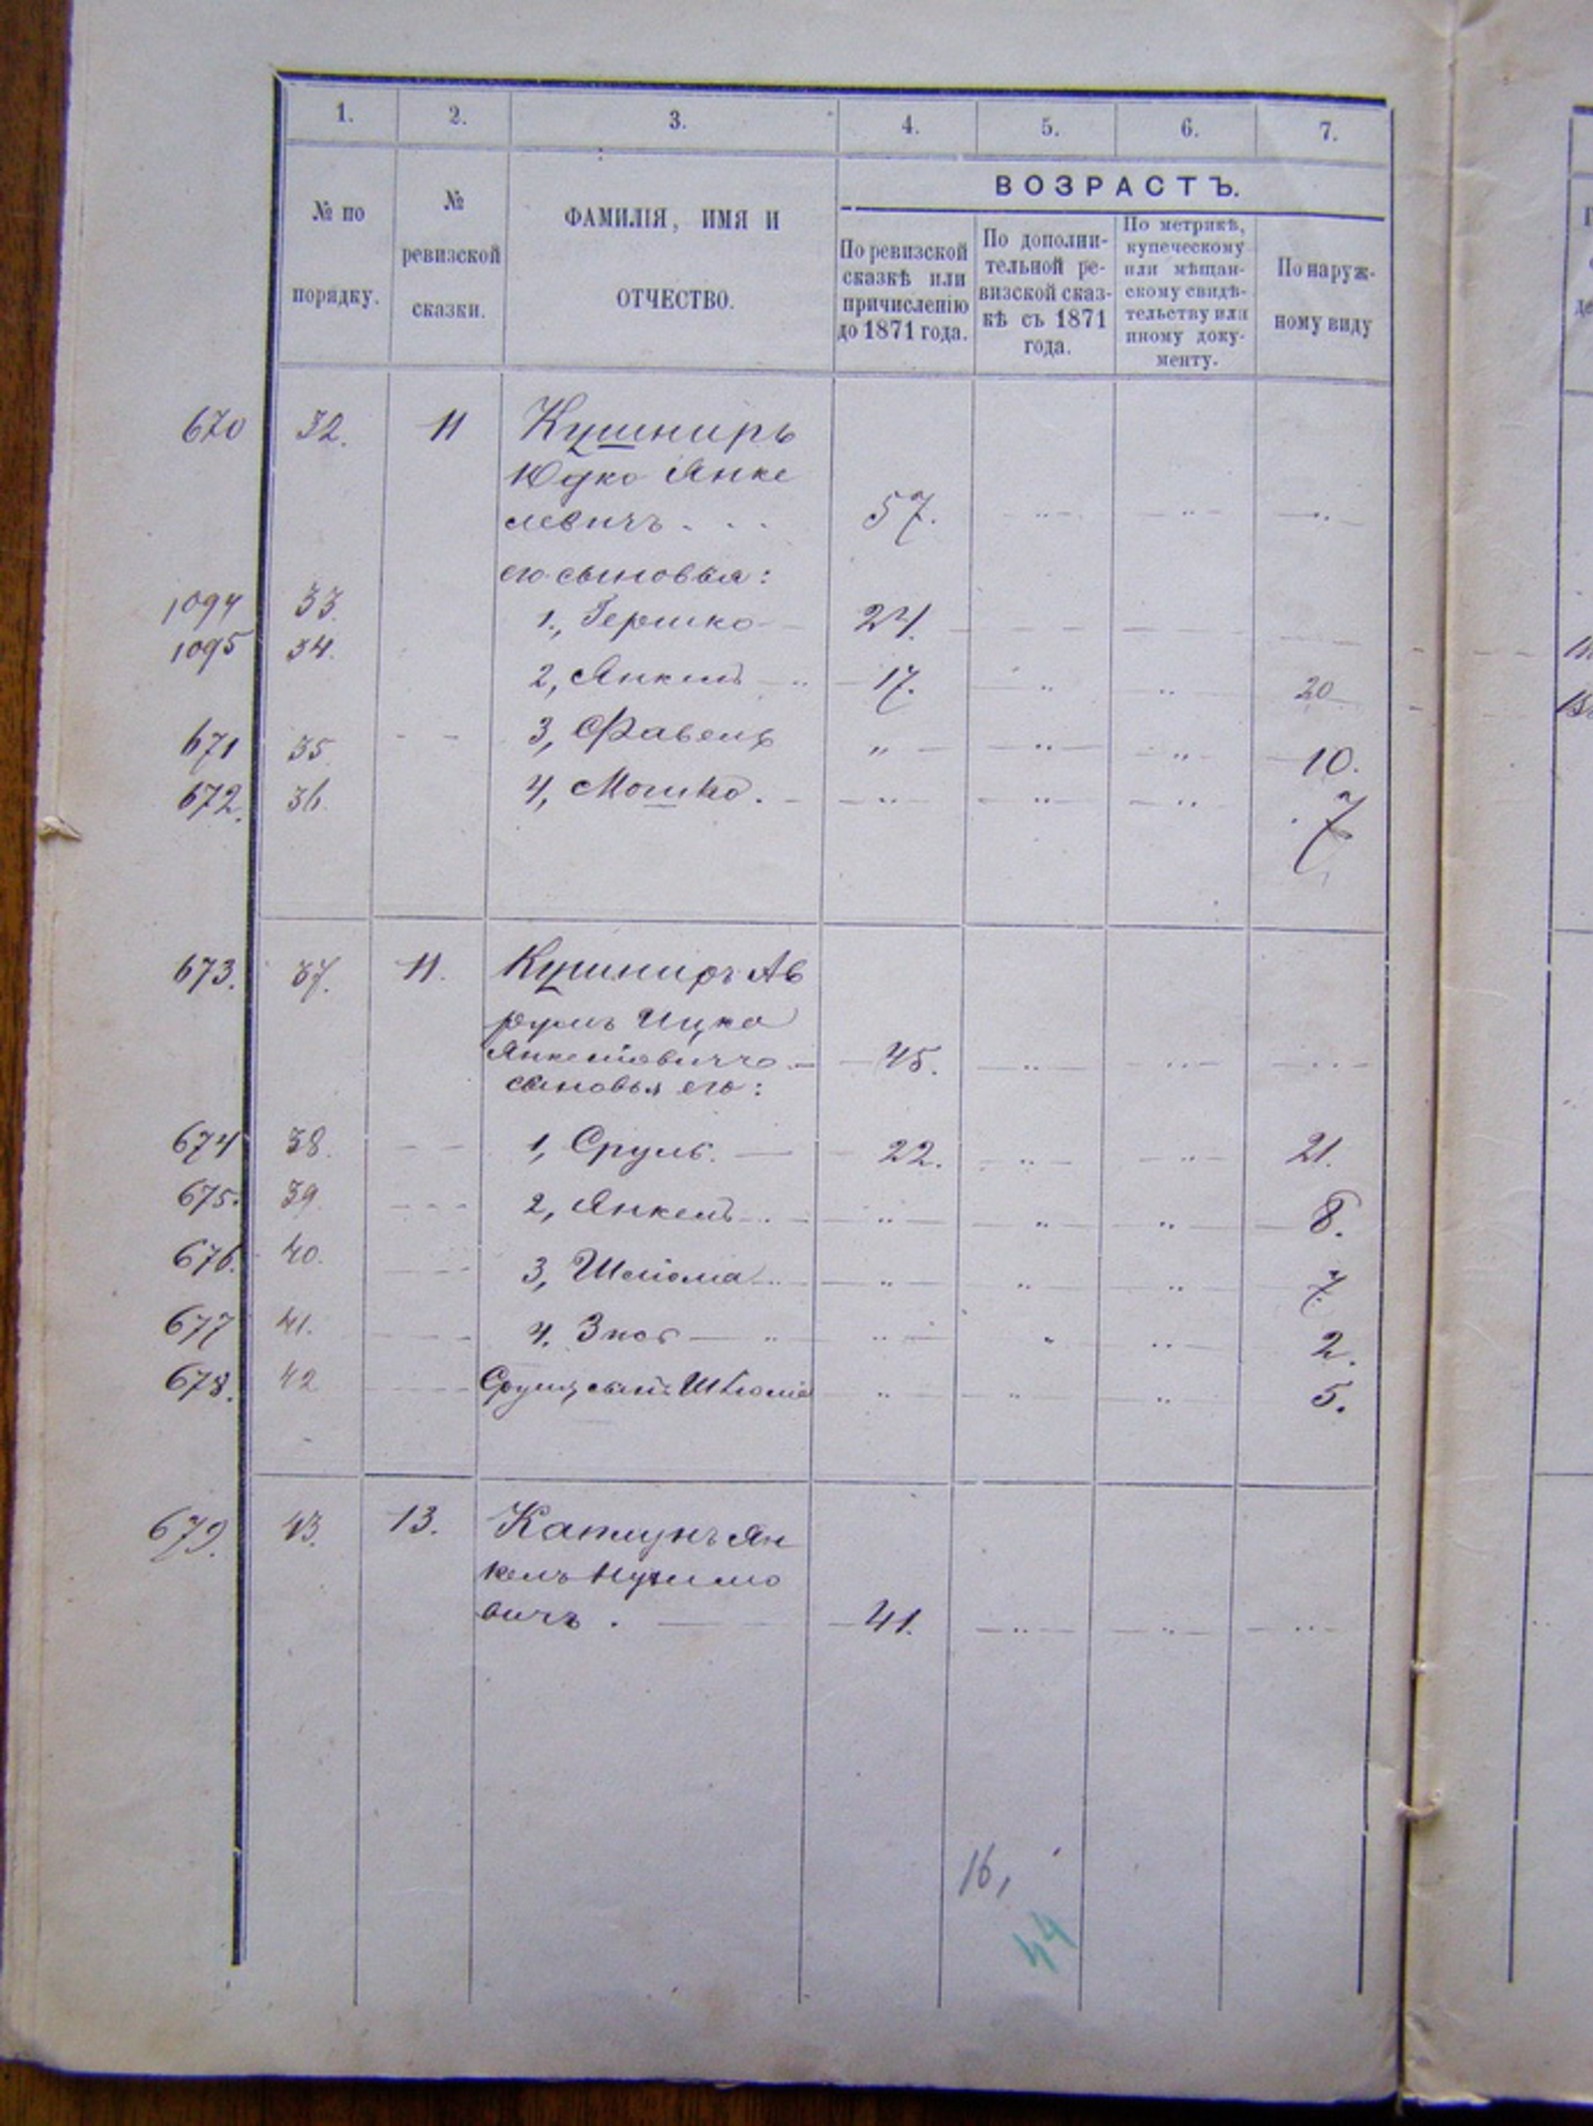 1. 2. 3. 4. 5. 6. 7.
ВОЗРАСТЪ.
№ по
порядку.
№
ревизской
сказки.
ФАМИЛІЯ, ИМЯ И
ОТЧЕСТВО.
По ревизской
сказкѣ или
причисленію
до 1871 года.
По дополни-
тельной ре-
визской сказ-
кѣ съ 1871
года.
По метрикѣ,
купеческому
или мѣщан-
скому свидѣ-
тельству или
иному доку-
менту.
По наруж-
ному виду
670 32. 11 Кушниръ
Юдко Янке
левичъ - - - 57.
его сыновья:
1094 33. 1., Гершко 24.
1095 34. 2, Янкель 17. 20
671 35 3, Фавель " 10.
672. 36. 4, Мошко. 7
673. 37. 11. Кушниръ Ав
румъ Ицко
Янкелевичъ 45.
сыновья его:
674 38. 1, Сруль. 22. 21.
675. 39. 2, Янкель 8.
676. 40. 3, Шліома 7
677 41. 4. 2.
678. 42 сынъ Шліома 5.
679. 43. 13. Капцунъ Ян
кель
вичъ. 41.
16,
44